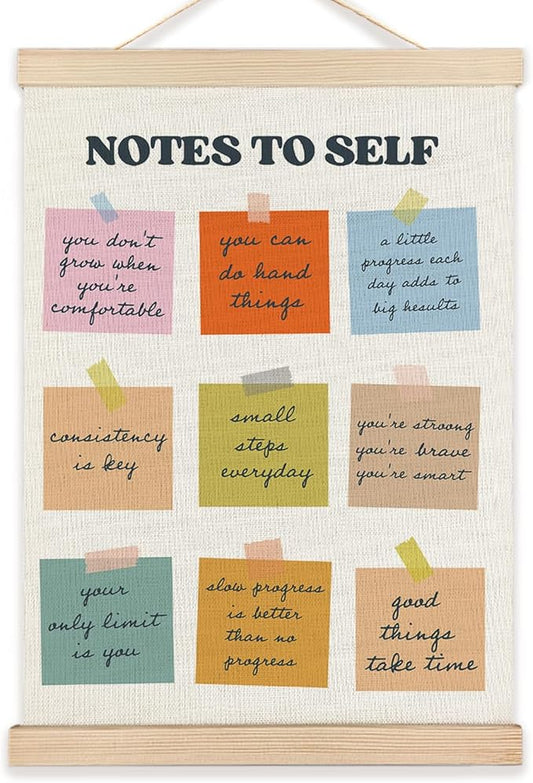 NOTES TO SELF
you don't
grow when
you're
comfortable
you can
do hand
things
a little
progress each
day adds to
big hesults
consistency
is key
small
steps
everyday
you're stroong
you're brave
you're smart
your
only limit
is you
slow progress
is better
than no
progress
good
things
take time